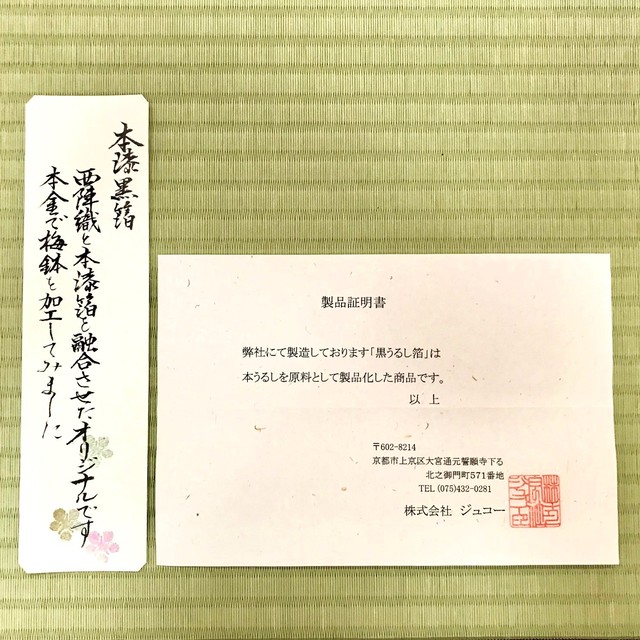 本漆黒箔
西陣織と本漆箔を融合させたオリジナルです
本金で梅鉢を加工してみました
製品証明書
弊社にて製造しております「黒うるし箔」は
本うるしを原料として製品化した商品です。
以 上
〒602-8214
京都市上京区大宮通元誓願寺下る
北之御門町571番地
TEL (075)432-0281
株式会社 ジュコー